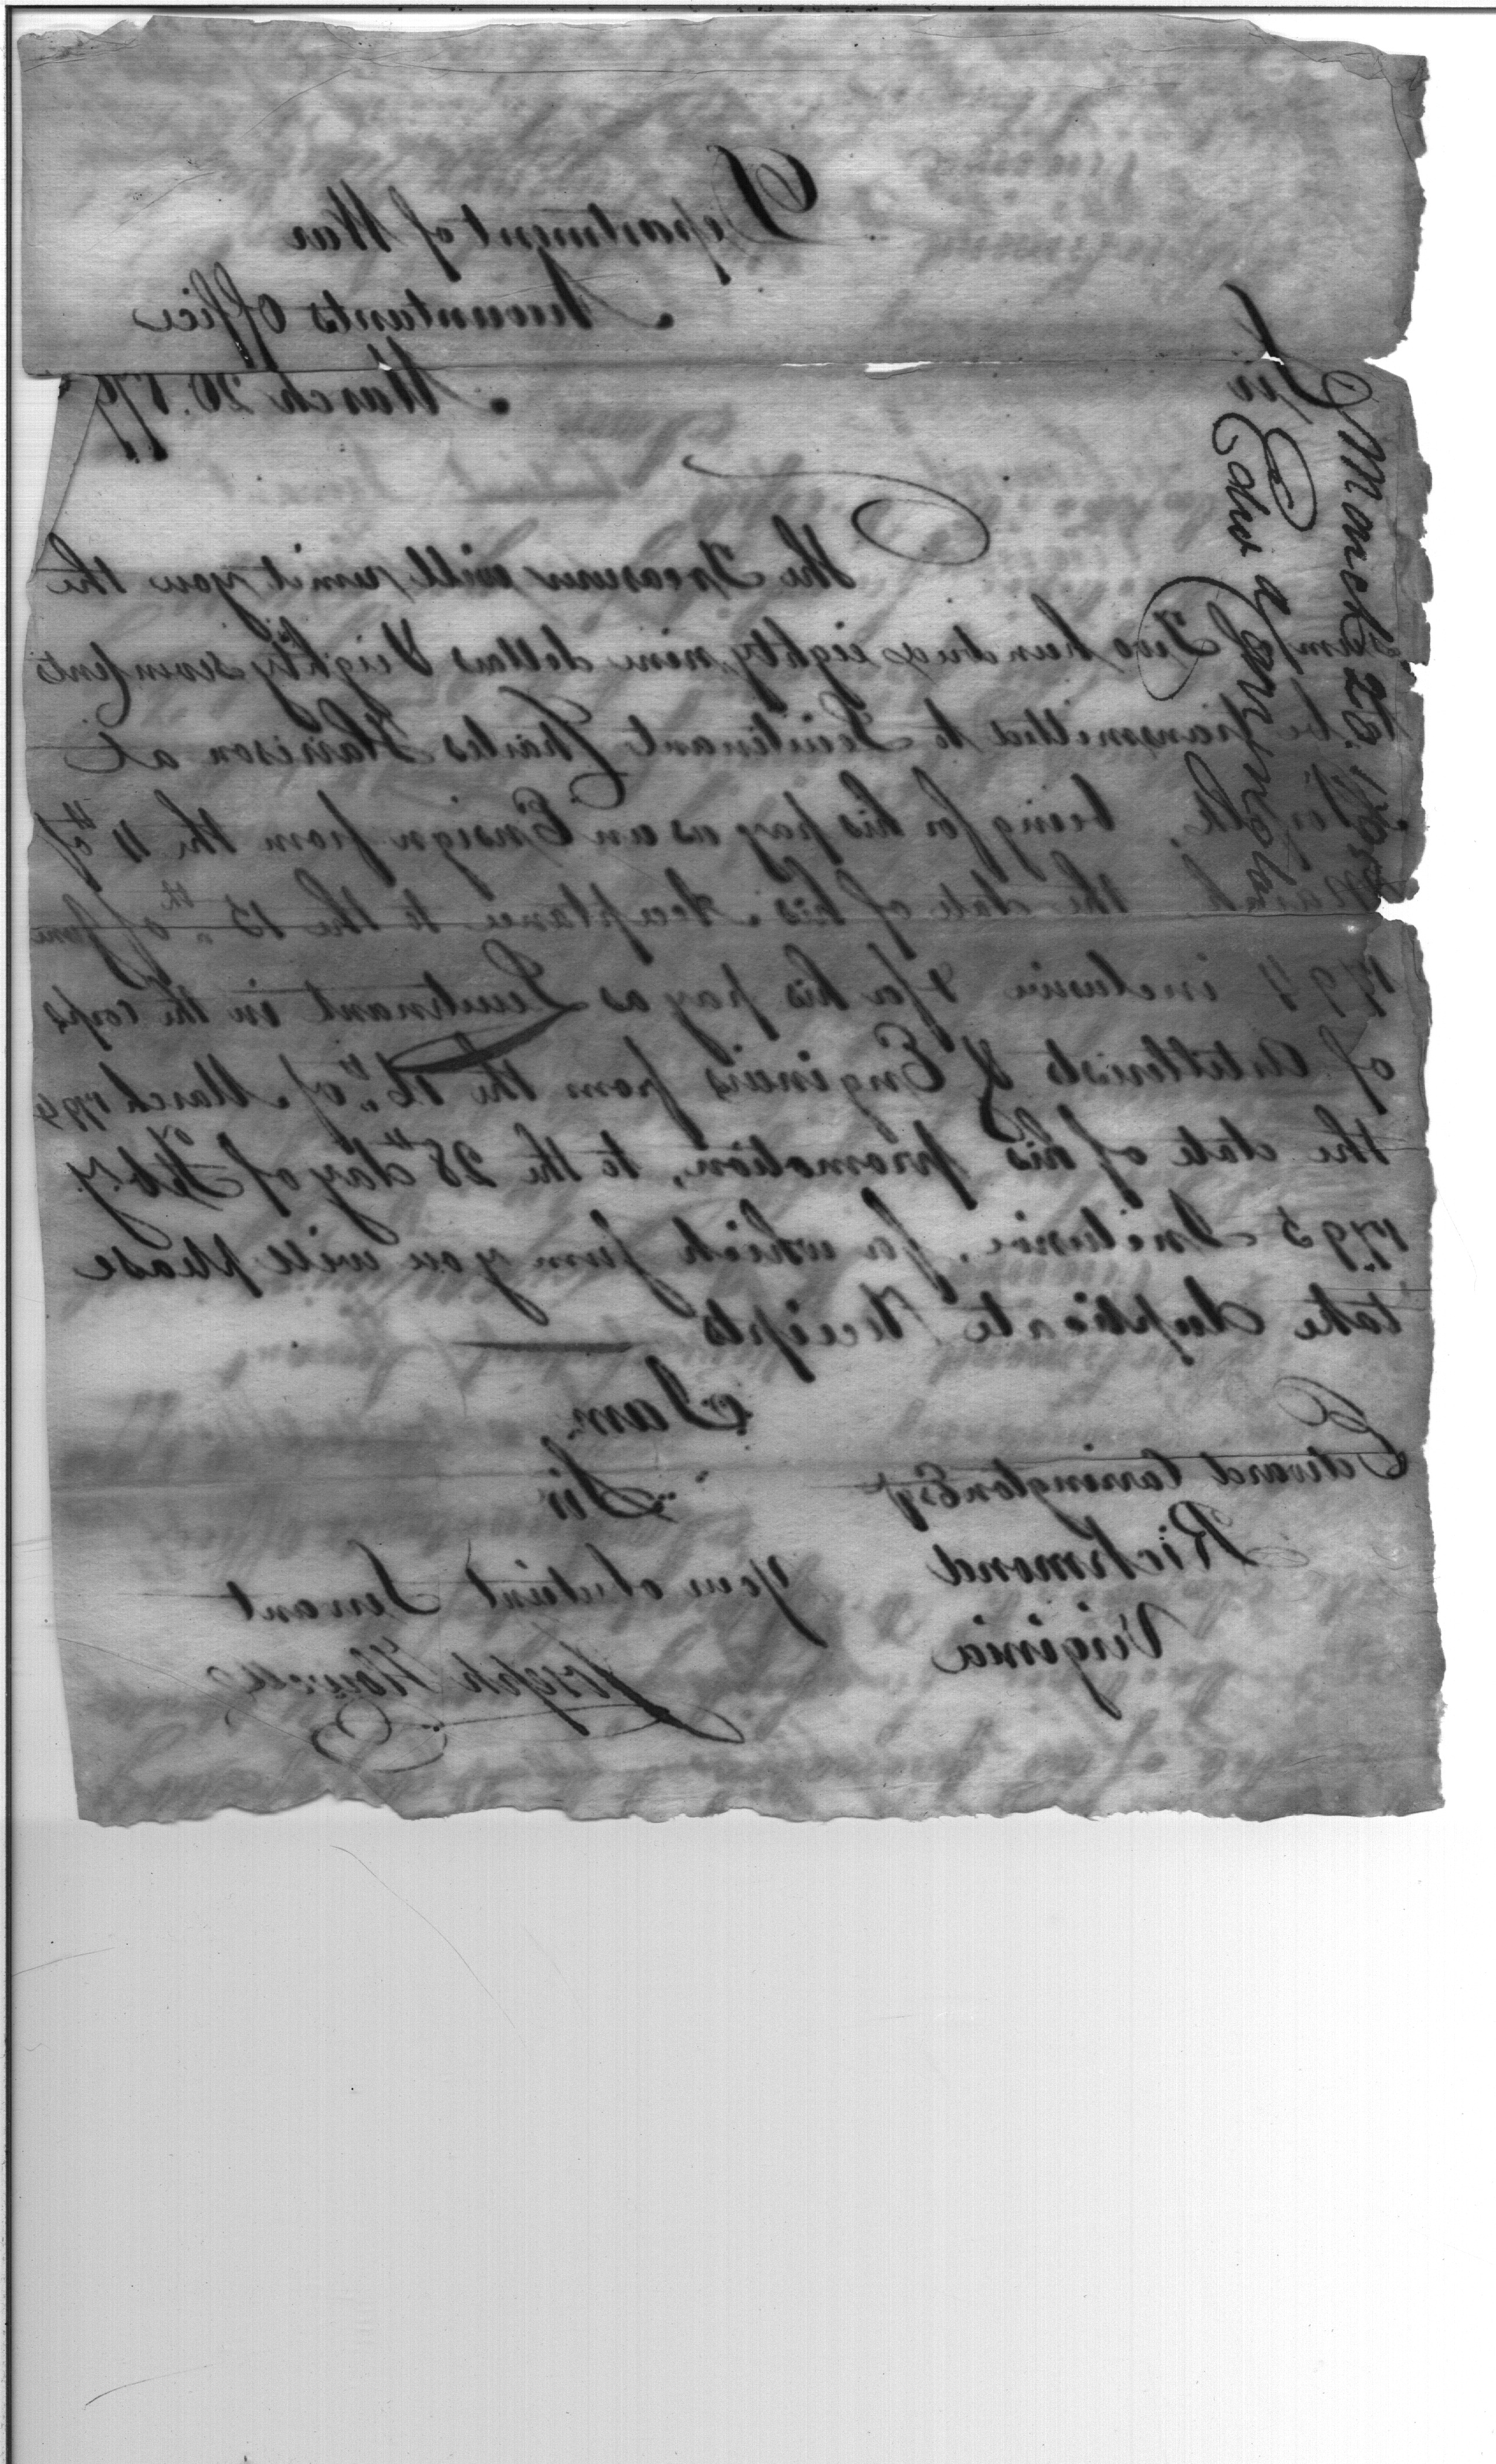 Department of War
Accountants Office
March 20. 179
Sir
The Treasurer will remit you the
Sum of Two hundred eighty nine dollars & eighty seven Cents
to be transmitted to Lieutenant Charles Harrison at
Norfolk, being for his pay as an Ensign from the 4th of
March, the date of his Acceptance to the 15th of June
1794 inclusive & for his pay as Lieutenant in the Corps
of Artillerists & Engineers from the 16th of March 1794
the date of his promotion, to the 28th day of Feby.
1795 Inclusive, for which sum you will please
take duplicate Receipts
I am
Sir
Your obedient Servant
Joseph Howell
Edward Carrington Esqr
Richmond
Virginia
March 20. 1795
Edwd Carrington